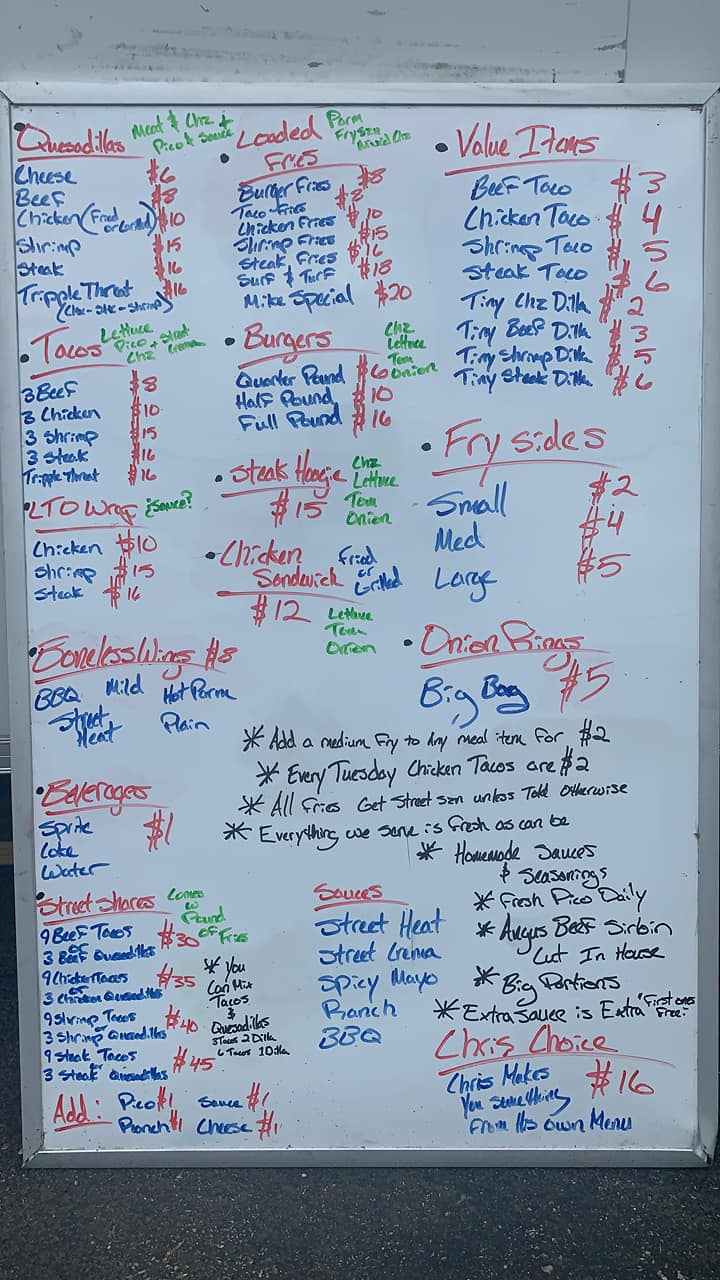 Quesadillas Meat & Chz +
Pico & Sauce
Cheese $6
Beef $8
Chicken (Fried or Grilled) $10
Shrimp $15
Steak $16
Tripple Threat $16
(Chx-Stk-Shrimp)
Tacos Lettuce
Pico + Street
Chz Crema
3 Beef $8
3 Chicken $10
3 Shrimp $15
3 Steak $16
Tripple Threat $16
LTO Wrap ¿Sauce?
Chicken $10
Shrimp $15
Steak $16
Boneless Wings $8
BBQ Mild Hot Parm
Street Heat Plain
Beverages
Sprite $1
Coke
Water
Street Shares Comes
w
Pound
of Fries
9 Beef Tacos $30
or
3 Beef Quesadillas
9 Chicken Tacos $35
or
3 Chicken Quesadillas
9 Shrimp Tacos $40
or
3 Shrimp Quesadillas
9 Steak Tacos $45
or
3 Steak Quesadillas
* You
Can Mix
Tacos
&
Quesadillas
3 Tacos 2 Dilla
6 Tacos 1 Dilla
Add: Pico $1 Sauce $1
Ranch $1 Cheese $1
Loaded Parm
Fries Fryszn
Chz
Burger Fries $8
Taco Fries $8
Chicken Fries $10
Shrimp Fries $15
Steak Fries $16
Surf & Turf $18
Mike Special $20
Burgers Chz
Lettuce
Tom
Onion
Quarter Pound $6
Half Pound $10
Full Pound $16
Steak Hoagie Chz
Lettuce
$15 Tom
Onion
Chicken Fried
Sandwich or
Grilled
$12 Lettuce
Tom
Onion
Value Items
Beef Taco $3
Chicken Taco $4
Shrimp Taco $5
Steak Taco $6
Tiny Chz Dilla $2
Tiny Beef Dilla $3
Tiny Shrimp Dilla $5
Tiny Steak Dilla $6
Fry Sides
Small $2
Med $4
Large $5
Onion Rings
Big Bag $5
* Add a medium Fry to Any meal item For $2
* Every Tuesday Chicken Tacos are $2
* All Fries Get Street szn unless Told Otherwise
* Everything we serve is fresh as can be
* Homemade Sauces
& Seasonings
* Fresh Pico Daily
* Angus Beef Sirloin
Cut In House
* Big Portions
* Extra Sauce is Extra "First ones
Free"
Sauces
Street Heat
Street Crema
Spicy Mayo
Ranch
BBQ
Chris Choice
Chris Makes $16
You Something
From His Own Menu